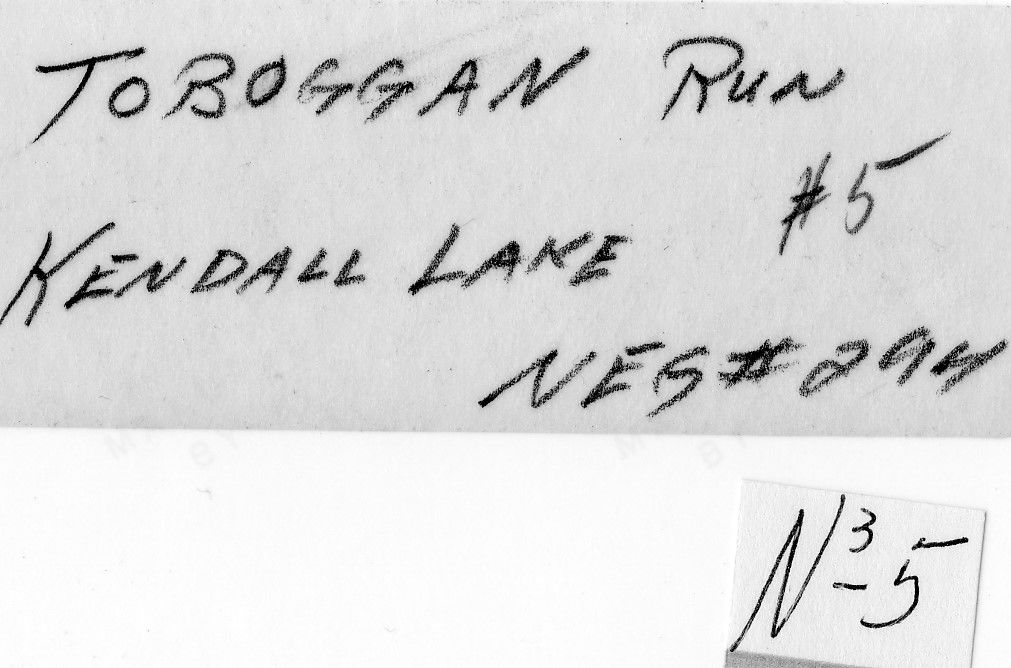 TOBOGGAN RUN
#5
KENDALL LAKE
NEG#294
N³-5